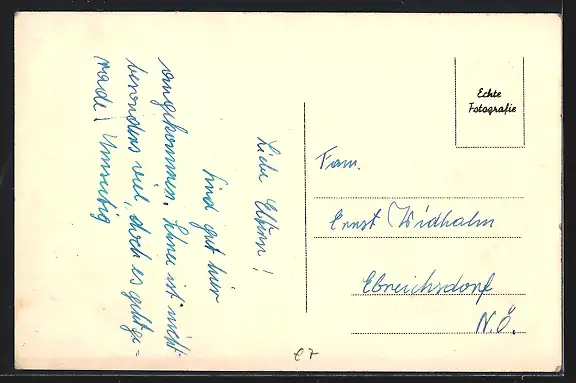 Liebe Eltern!
Sind gut hier
angekommen. Schnee ist nicht
besonders viel, doch es geht ge=
rade! Umseitig
Echte
Fotografie
Fam.
Ernst Widhalm
Ebreichsdorf
N.Ö.
e7